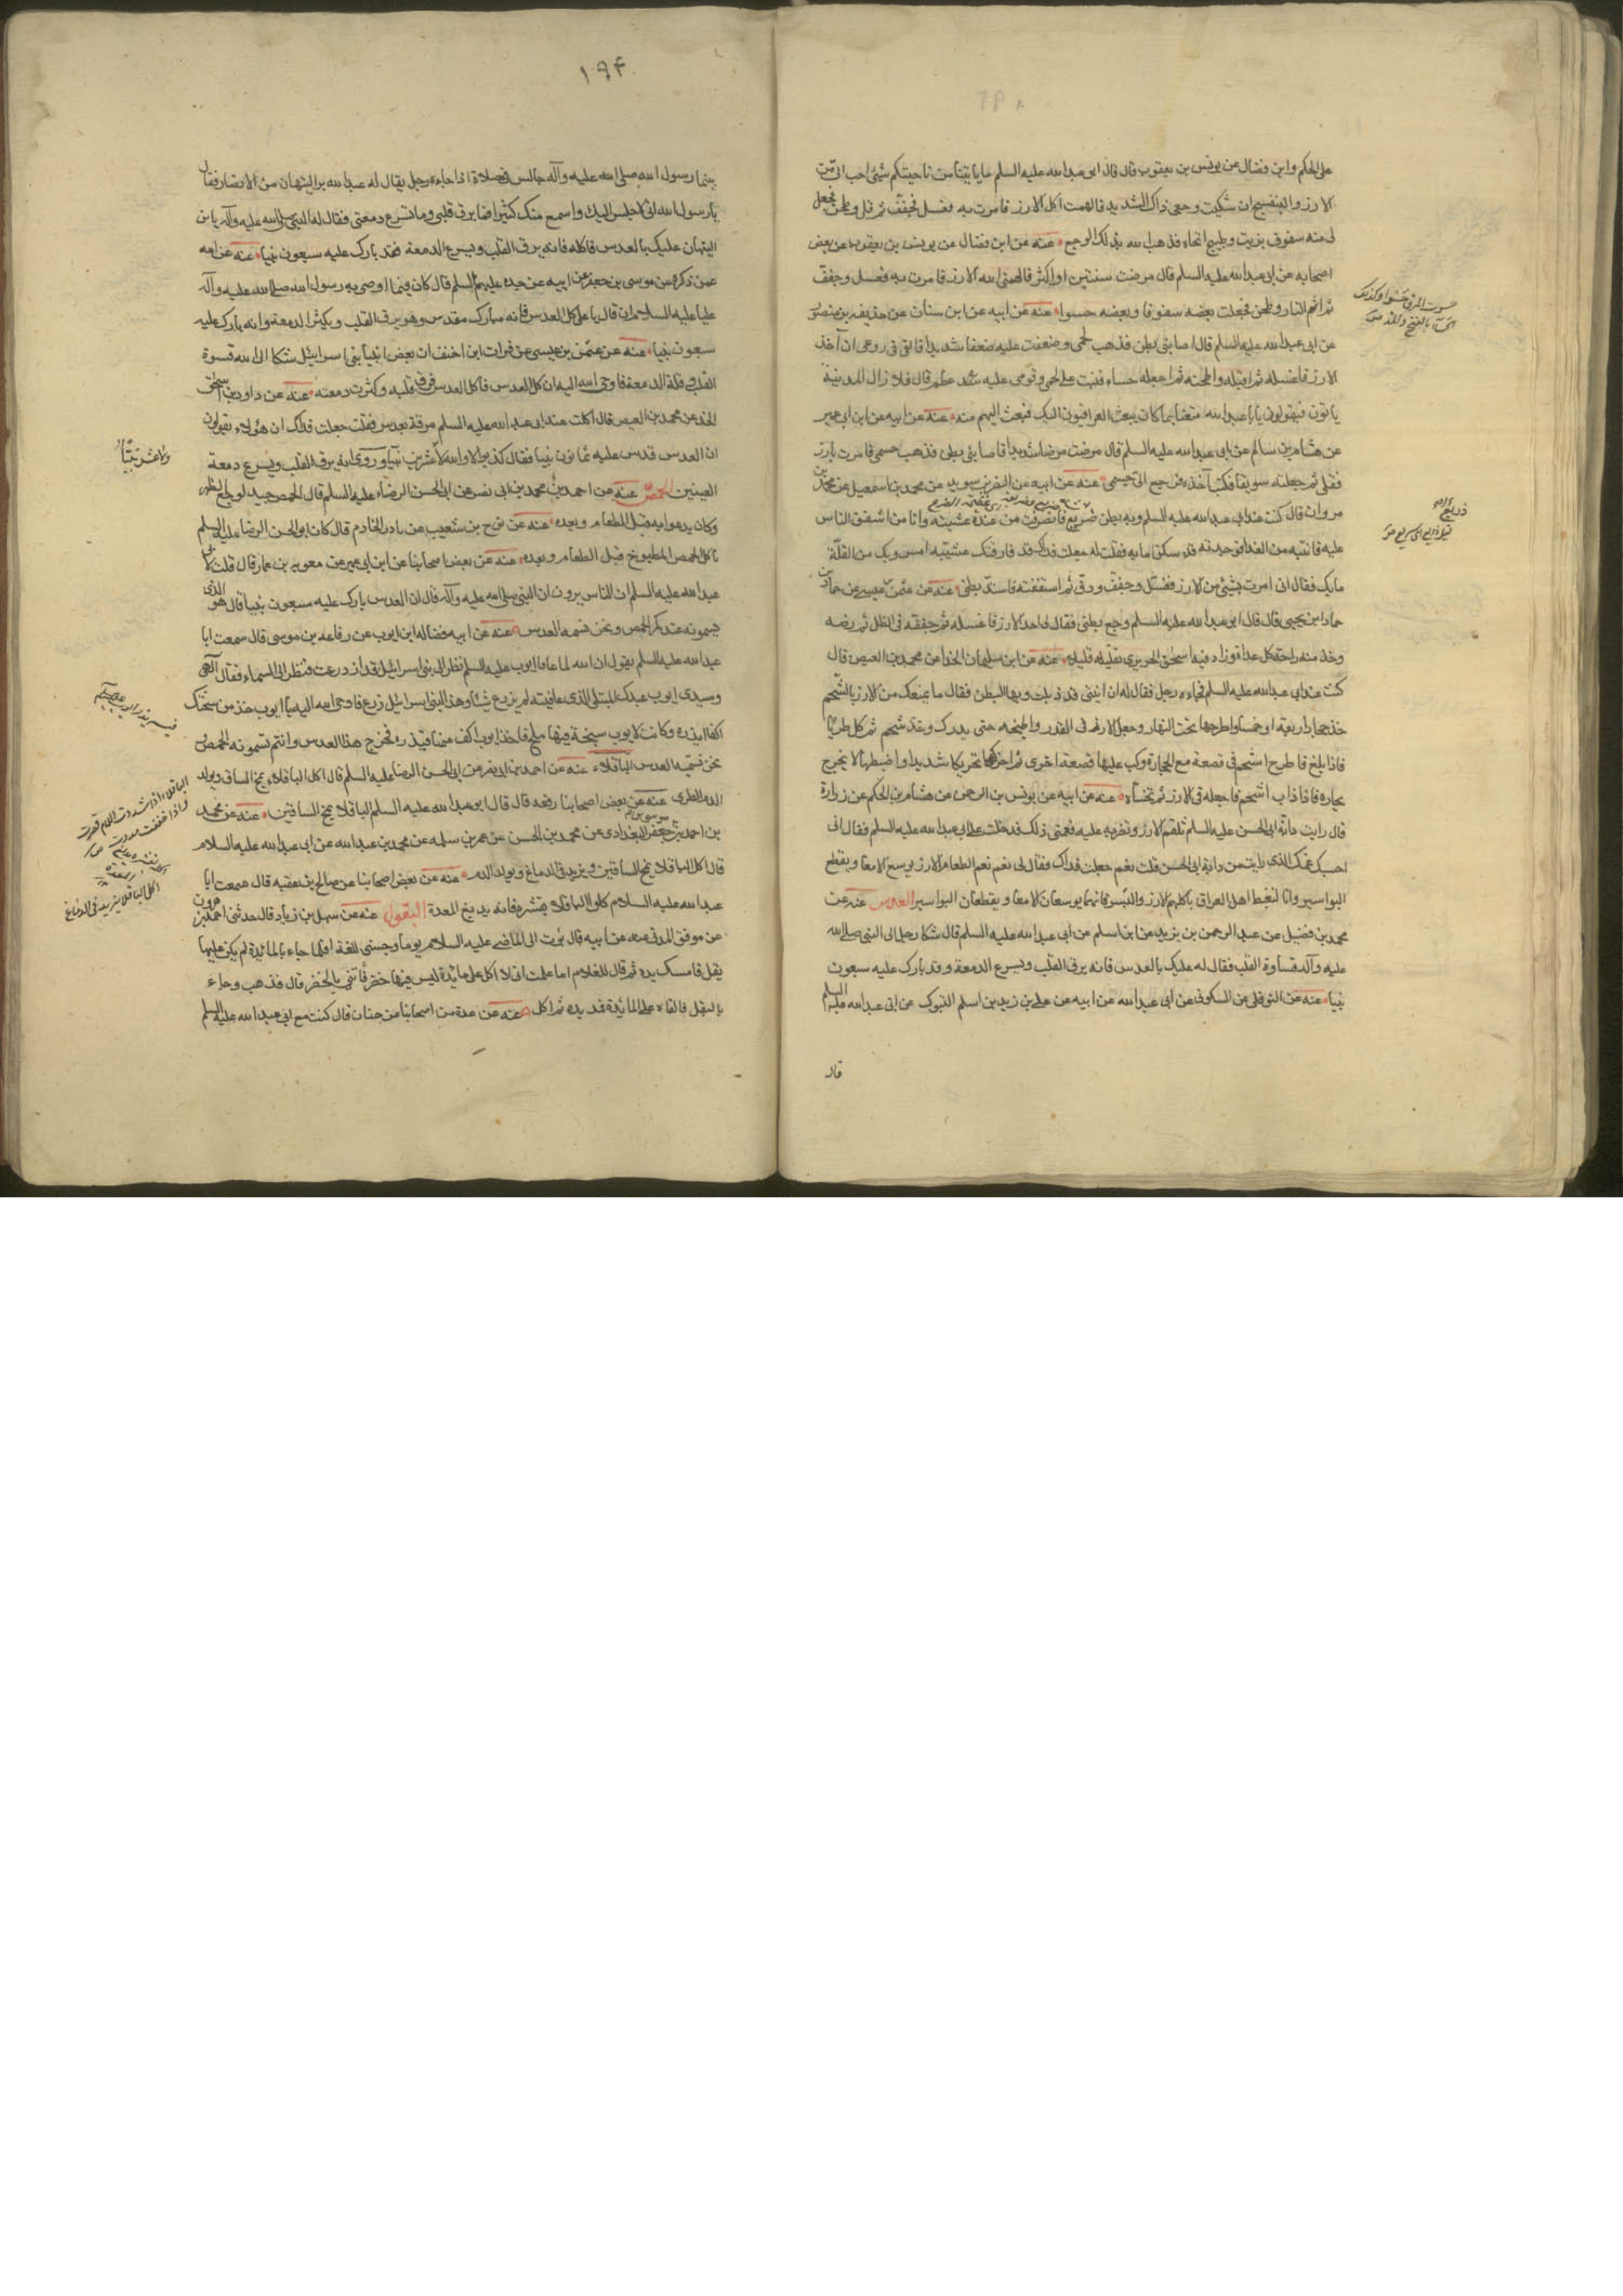 على الحكم وابن فضال عن يونس بن يعقوب قال قال ابى عبدالله عليه السلم ما ياتينا من ناحيتكم شيئ احب الى من
الارز والبنفسج ان شكيت وجعى ذاك الشديد فالهمت اكل الارز فامرت به فغسل فجفف ثم قلى وطحن فجعل
لى منه سفوف بزيت وطبيخ اتحاه فذهب الله بذلك الوجع عنه عن ابن فضال عن يونس بن يعقوب عن بعض
اصحابه عن ابى عبدالله عليه السلم قال مرضت سنتين او اكثر فالهمنى الله الارز فامرت به فغسل وجفف
ثم اشم النار وطحن فجعلت بعضه سفوفا وبعضه حسوا عنه عن ابيه عن ابن سنان عن حذيفه بن منصور
عن ابى عبدالله عليه السلم قال اصابنى بطن فذهب لحمى وضعفت عليه ضعفا شديدا فالقى فى روعى ان آخذ
الارز فاغسله ثم اقليه واطحنه ثم اجعله حساء فنبت على لحمى وقوى عليه عظمى قال فلا زال اهل المدينة
ياتون فيقولون يا با عبدالله متعنا بما كان يبعث العراقيون اليك فبعث اليهم منه عنه عن ابيه عن ابن ابى عمير
عن هشام بن سالم عن ابى عبدالله عليه السلم قال مرضت مرضا شديدا فاصابنى بطن فذهب جسمى فامرت بارز
فقلى ثم جعلته سويقا فكنت آخذه فرجع الى جسمى عنه عن ابيه عن النضر بن سويد عن محمد بن اسمعيل عن محمد بن
مروان قال كنت عند ابى عبدالله عليه السلم وبه بطن ذريع فانصرفت من عنده عشية وانا من اشفق الناس
عليه فاتيته من الغد فوجدته قد سكن ما به فقلت له جعلت فداك قد فارقتك عشية امس وبك من العلة
ما بك فقال انى امرت بشيئ من الارز فغسل وجفف ودق ثم استففته فاشتد بطنى عنه عن عثمن بن عيسى عن خالد بن
نجيح قال قال ابو عبدالله عليه السلم وجع بطنى فقال لى احد الارز فاغسله ثم جففه فى الظل ثم رضه
وخذ منه راحة كل غداة وزاد فيه اسحق الجريرى تقليه قليلا عنه عن ابن سليمان الحذا عن محمد بن الفيض قال
كنت عند ابى عبدالله عليه السلم فجاءه رجل فقال له ان ابنتى قد ذبلت وبها البطن فقال ما يمنعك من الارز بالشحم
خذ حجارا اربعة او خمسا واطرحها تحت النار واجعل الارز فى القدر واطبخه حتى يدرك وخذ شحم كلى طريا
فاذا بلغ فاطرح الشحم فى قصعة مع الحجارة وكب عليها قصعة اخرى ثم حركها تحريكا شديدا واضبطها لا يخرج
بخاره فاذا ذاب الشحم فاجعله فى الارز ثم تحساه عنه عن ابيه عن يونس بن عبد الرحمن عن هشام بن الحكم عن زرارة
قال رايت داية ابى الحسن عليه السلم تلقمه الارز وتضربه عليه فغمنى ذلك فدخلت على ابى عبدالله عليه السلم فقال انى
احسبك غمك الذى رايت من داية ابى الحسن قلت نعم جعلت فداك فقال لى نعم نعم الطعام الارز يوسع الامعا ويقطع
البواسير وانا لنغبط اهل العراق باكلهم الارز والبسر فانهما يوسعان الامعا ويقطعان البواسير العدس عنه عن
محمد بن فضيل عن عبد الرحمن بن يزيد عن ابن اسلم عن ابى عبد الله عليه السلم قال شكا رجل الى النبى صلى الله
عليه وآله قساوة القلب فقال له عليك بالعدس فانه يرق القلب ويسرع الدمعة وقد بارك عليه سبعون
نبيا عنه عن النوفلى عن السكونى عن ابى عبدالله عن ابيه عن على بن زيد بن اسلم التبوك عن ابى عبدالله عليه السلم
قال
١٩٤
بينما رسول الله صلى الله عليه وآله جالس فى مصلاه اذا جاءه رجل يقال له عبدالله بن التيهان من الانصار فقال
يا رسول الله انى لاجلس اليك واسمع منك كثيرا فما يرق قلبى وما تسرع دمعتى فقال له النبى صلى الله عليه وآله يا بن
التيهان عليك بالعدس فاكله فانه يرق القلب ويسرع الدمعة فقد بارك عليه سبعون نبيا عنه عن ابيه
عمن ذكره عن موسى بن جعفر عن ابيه عن جده عليهم السلم قال كان فيما اوصى به رسول الله صلى الله عليه وآله
عليا عليه السلام ان قال يا على كل العدس فانه مبارك مقدس وهو يرق القلب ويكثر الدمعة وانه بارك عليه
سبعون نبيا عنه عن عثمن بن عيسى عن فرات ابن احنف ان بعض انبيا بنى اسرائيل شكا الى الله قسوة
القلب وقلة الدمعة فاوحى الله اليه ان كل العدس فاكل العدس فرق قلبه وكثرت دمعته عنه عن داود بن اسحق
الحذا عن محمد بن الفيض قال اكلت عند ابى عبدالله عليه السلم مرقة بعدس فقلت جعلت فداك ان هؤلاء يقولون
ان العدس قدس عليه ثمانون نبيا فقال كذبوا لا والله لا عشرين نبيا وروى انه يرق القلب ويسرع دمعة
العينين الحمص عنه عن احمد بن محمد بن ابى نصر عن ابى الحسن الرضا عليه السلم قال الحمص جيد لوجع الظهر
وكان يدعوا به قبل الطعام وبعده عنه عن نوح بن شعيب عن نادر الخادم قال كان ابو الحسن الرضا عليه السلم
ياكل الحمص المطبوخ قبل الطعام وبعده عنه عن بعض اصحابنا عن ابن ابى عمير عن معويه بن عمار قال قلت لابى
عبدالله عليه السلم ان الناس يروون ان النبى صلى الله عليه وآله قال ان العدس بارك عليه سبعون نبيا قال هو الذى
يسمونه عندكم الحمص ونحن نسميه العدس عنه عن ابيه فضاله ابن ايوب عن رفاعه بن موسى قال سمعت ابا
عبدالله عليه السلم يقول ان الله لما عافا ايوب عليه السلم نظر الى بنى اسرائيل قد ازدرعت فنظر الى السماء فقال الهى
وسيدى ايوب عبدك المبتلى الذى عافيته لم يزدرع شيئا وهذا لبنى اسرائيل زرع فاوحى الله اليه يا ايوب خذ من سبحتك
اكفا ابذره وكانت لايوب سبحة فيها ملح فاخذ ايوب اكف منها فبذره فخرج هذا العدس وانتم تسمونه الحمص
نحن نسميه العدس الباقلاء عنه عن احمد بن ابى نصر عن ابى الحسن الرضا عليه السلم قال اكل الباقلاء يمخ الساق ويولد
الدم الطرى عنه عن بعض اصحابنا رفعه قال قال ابو عبدالله عليه السلم الباقلا يمخ الساقين عنه عن محمد
بن احمد بن جعفر البغدادى عن محمد بن الحسن عن عمر بن سلمه عن محمد بن عبدالله عن ابى عبدالله عليه السلام
قال اكل الباقلا يمخ الساقين ويزيد فى الدماغ ويولد الدم عنه عن بعض اصحابنا عن صالح بن عقبه قال سمعت ابا
عبدالله عليه السلام كلوا الباقلا بقشره فانه يدبغ المعدة البقول عنه عن سهل بن زياد قال حدثنى احمد بن هرون
عن موفق المدنى عن ابيه قال بعث الى الماضى عليه السلام يوما وحبسنى للغدا فلما جاءوا بالمائدة لم يكن عليها
بقل فامسك يده ثم قال للغلام اما علمت انى لا اكل على مائدة ليس فيها خضر فأتنى بالخضر قال فذهب وجاء
بالبقل فالقاه على المائدة فمد يده ثم اكل عنه عن عدة من اصحابنا عن حنان قال كنت مع ابى عبدالله عليه السلم
الباقلاء اذا شددت اللام قصرت
واذا خففت مددت
اكل الباقلا يزيد فى الدماغ